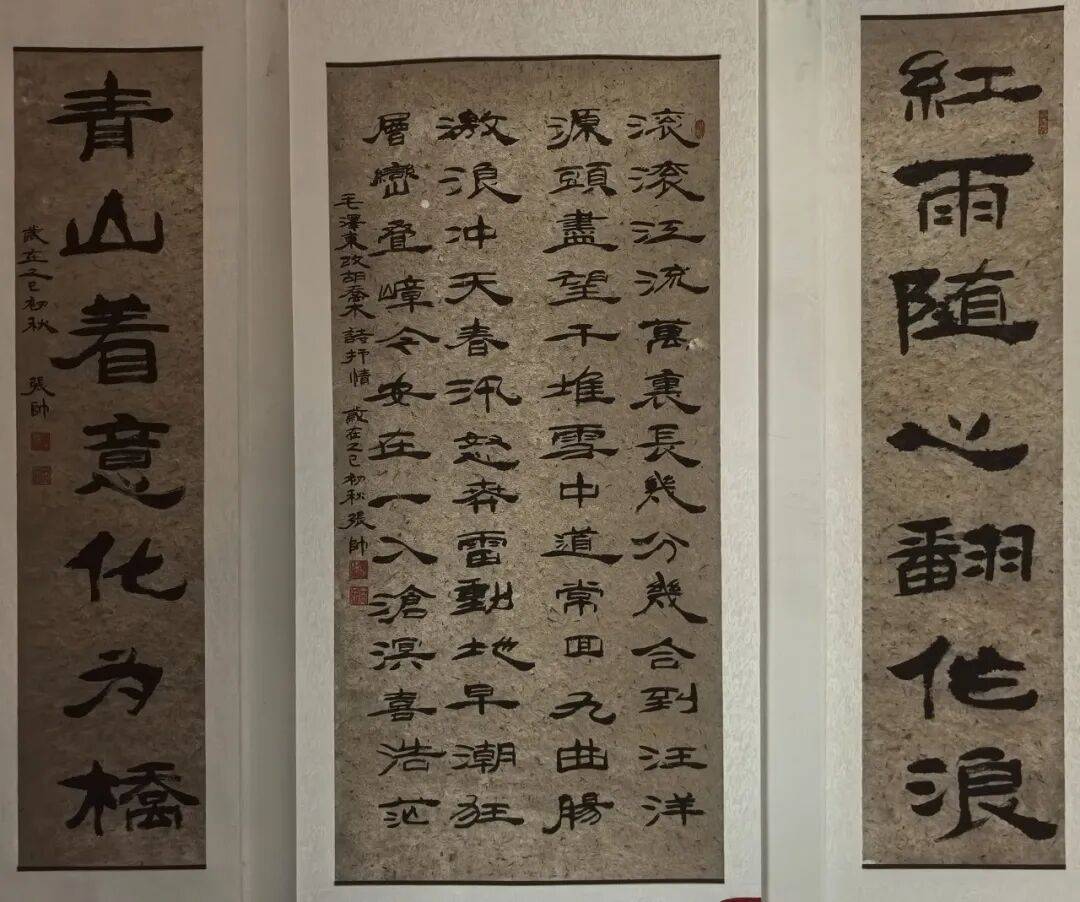 紅雨随心翻作浪
滚滚江流萬裏長幾分幾合到汪洋
源頭盡望千堆雪中道常回九曲腸
激浪冲天春汛怒奔雷動地早潮狂
層巒叠嶂今安在一入滄溟喜浩茫
毛澤東改胡喬木詩抒情 歲在乙巳初秋 張帥
青山着意化为橋
歲在乙巳初秋 張帥